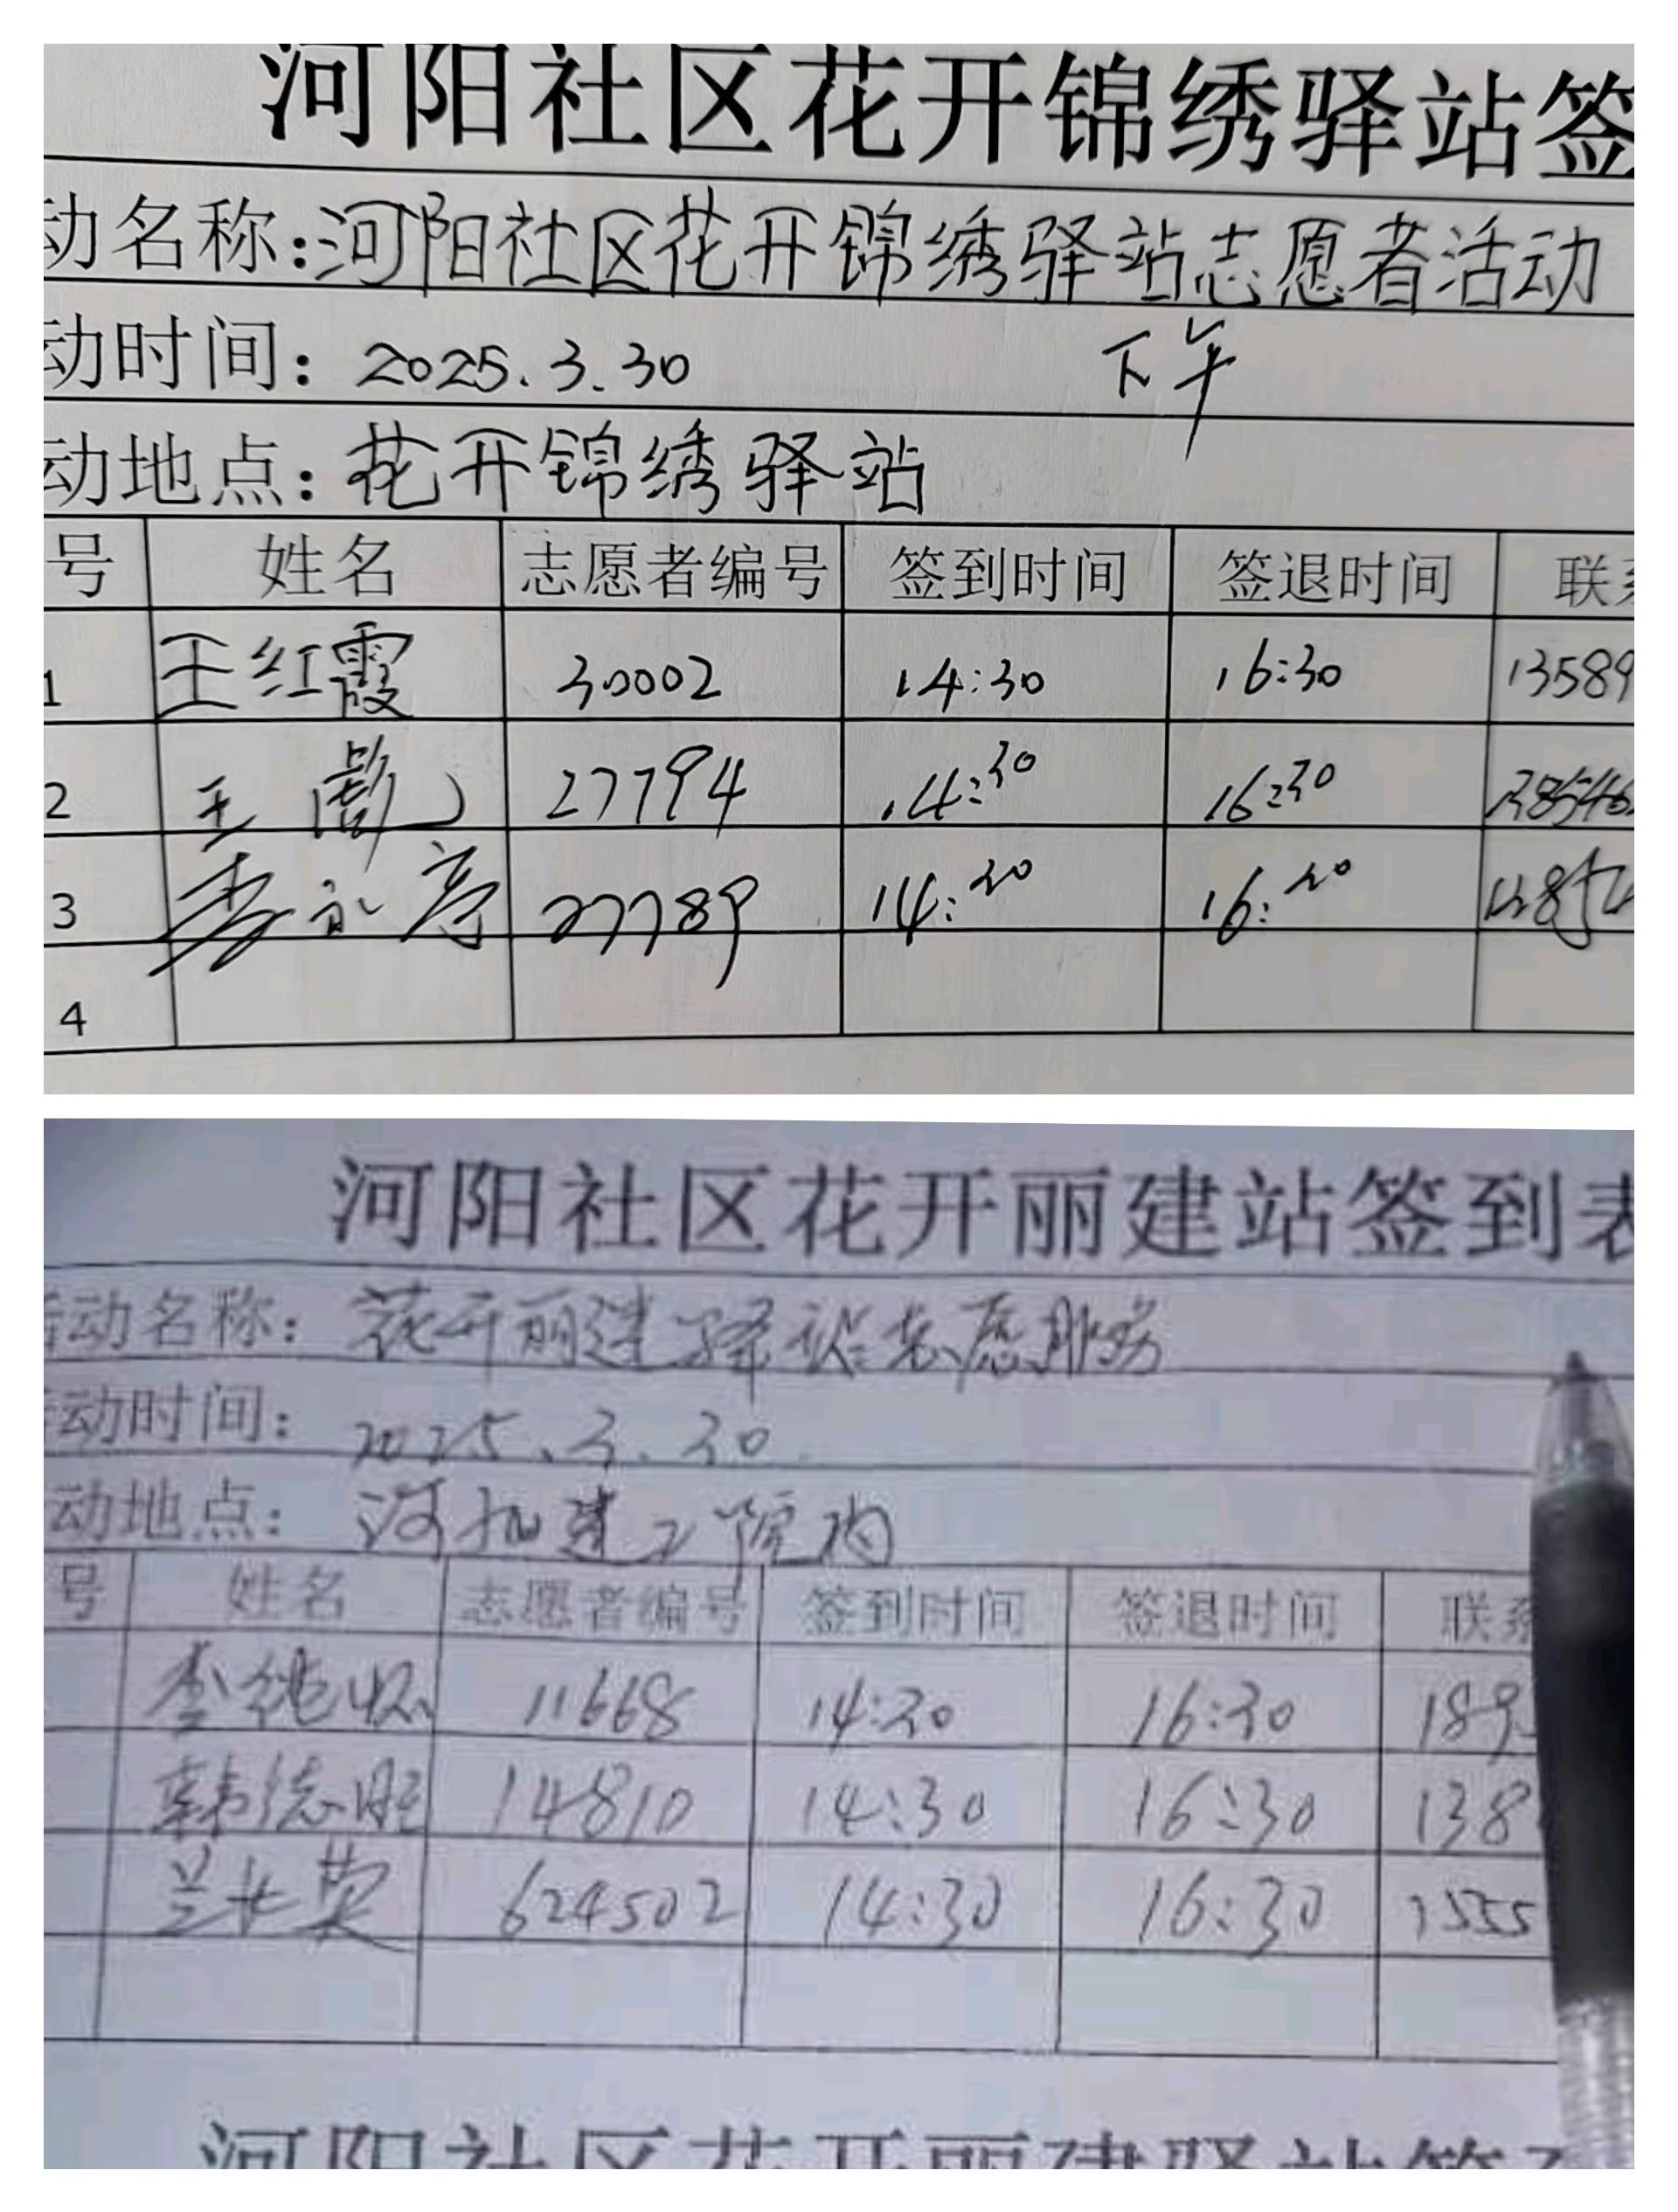 河阳社区花开锦绣驿站签
动名称:河阳社区花开锦绣驿站志愿者活动
动时间: 2025.3.30 下午
动地点: 花开锦绣驿站
号 姓名 志愿者编号 签到时间 签退时间 联系
1 王红霞 30002 14:30 16:30 13589
2 王 27794 14:30 16:30 138546
3 李 27789 14:30 16:30
4
河阳社区花开丽建站签到表
活动名称: 花开丽建驿站志愿服务
活动时间: 2025.3.30
动地点: 河阳建工院内
号 姓名 志愿者编号 签到时间 签退时间 联系
李 11668 14:30 16:30 189
韩德旺 14810 14:30 16:30 138
兰长英 624502 14:30 16:30 1555
河阳社区花开丽建驿站签到